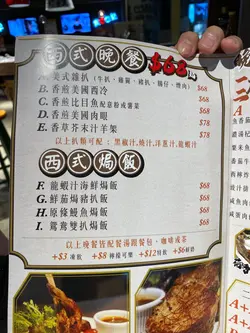 西式晚餐 $68起
A. 美式雜扒 (牛扒、雞扒、豬扒、腸仔、煙肉) $68
B. 香煎美國西冷 $68
C. 香煎比目魚配意粉或薯菜 $68
D. 香煎美國肉眼 $78
E. 香草芥末汁羊架 $78
以上扒類可配：黑椒汁,燒汁,洋蔥汁,龍蝦汁
西式焗飯
F. 龍蝦汁海鮮焗飯 $68
G. 鮮茄焗豬扒飯 $68
H. 原條鰻魚焗飯 $68
I. 鴛鴦雙扒焗飯 $68
以上晚餐皆配餐湯跟餐包、咖啡或茶
+$3凍飲 +$8 +$12特飲 +$6